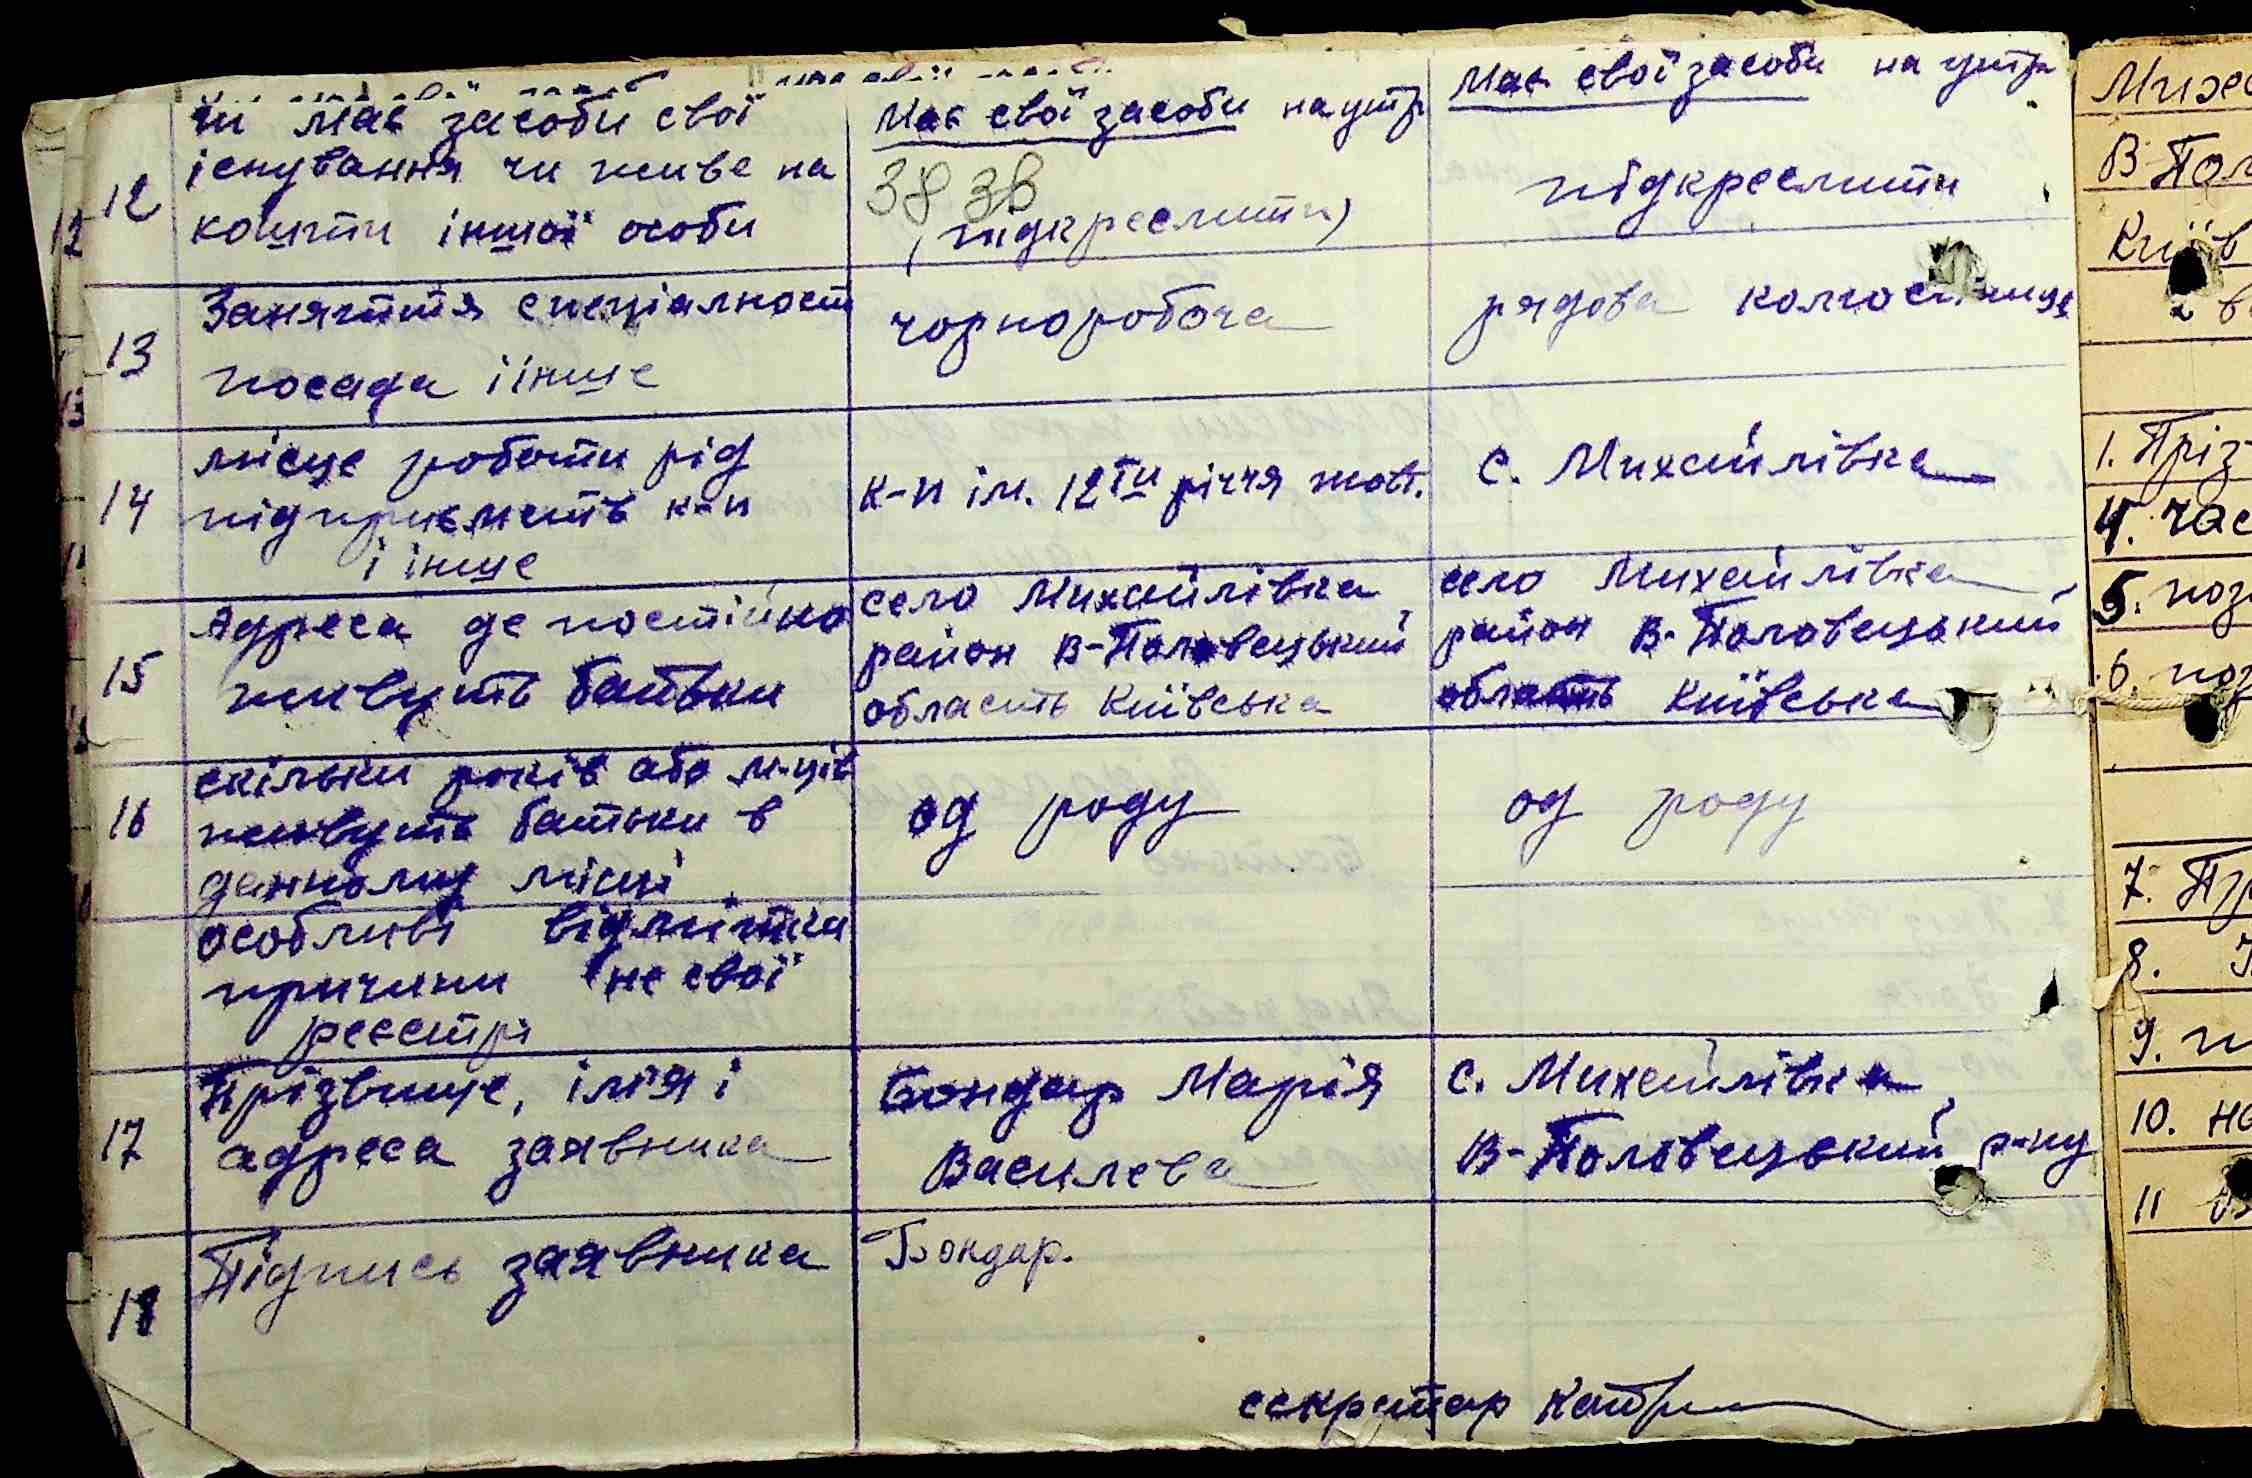 12
чи має засоби свої
існування чи живе на
кошти іншої особи
Має свої засоби на утр
38 38
(підкреслити)
Має свої засоби на утр
підкреслити
13
Заняття спеціалност
посада і інше
чорноробоча
рядова колгоспниця
14
місце роботи рід
підприємств к-п
і інше
к-п ім. 12ти річчя жовт.
с. Михайлівка
15
Адреса де постійно
живуть батьки
село Михайлівка
район В-Половецький
область Київська
село Михайлівка
район В-Половецький
область Київська
16
скільки років або м-ців
живуть батьки в
данному місці
од роду
од роду
особливі відмітки
причини не свої
реєстрі
17
Прізвище, імія і
адреса заявника
Бондар Марія
Василева
с. Михайлівка
В-Половецький р-ну
18
Підпись заявника
Бондар.
секретар
В-Пол
Київ
1. Пріз
4. час
5. поз
6. поз
7. Пр
8.
9. п
10. на
11